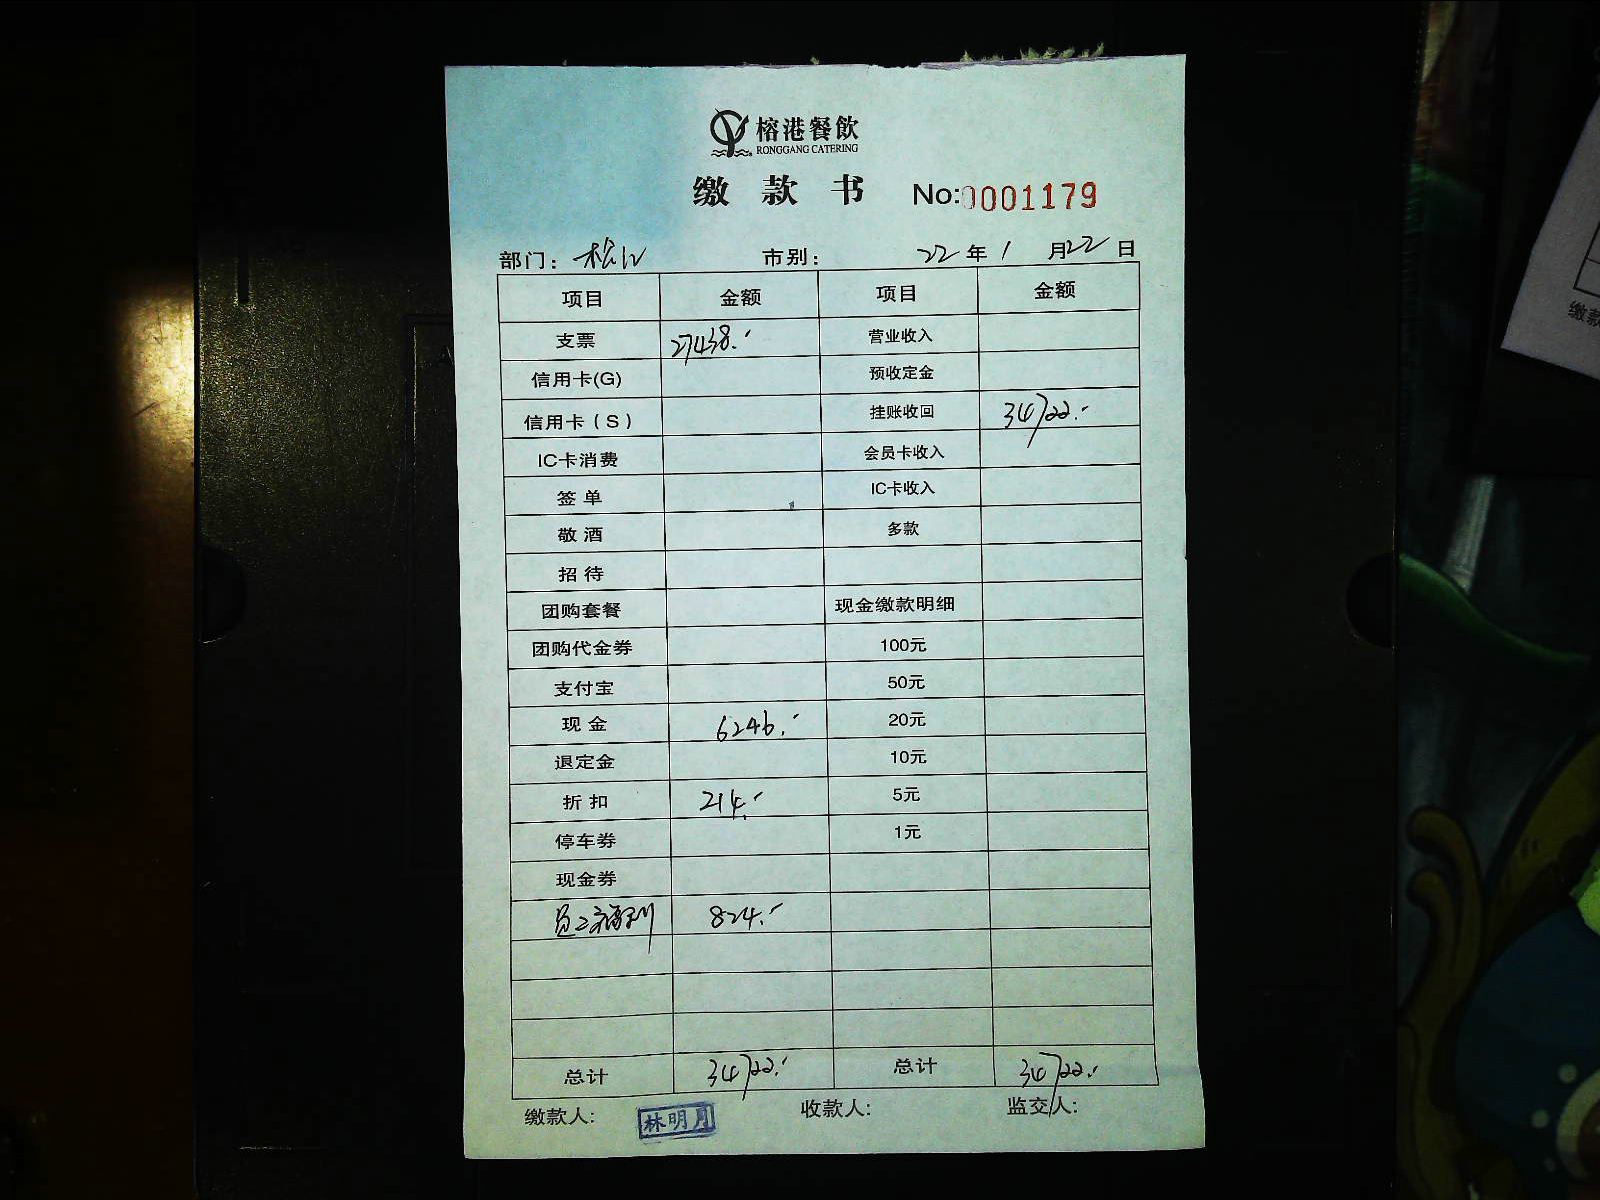 榕港餐飲
RONGGANG CATERING
缴 款 书 No:0001179
部门: 松江 市别: 22 年 1 月 22 日
项目 金额 项目 金额
支票 27438.- 营业收入
信用卡(G) 预收定金
信用卡(S) 挂账收回 34722.-
IC卡消费 会员卡收入
签 单 IC卡收入
敬 酒 多款
招 待
团购套餐 现金缴款明细
团购代金券 100元
支付宝 50元
现 金 6246.- 20元
退定金 10元
折 扣 214.- 5元
停车券 1元
现金券
员工福利 824.-
总计 34722.- 总计 34722.-
缴款人: 林明月 收款人: 监交人:
缴款